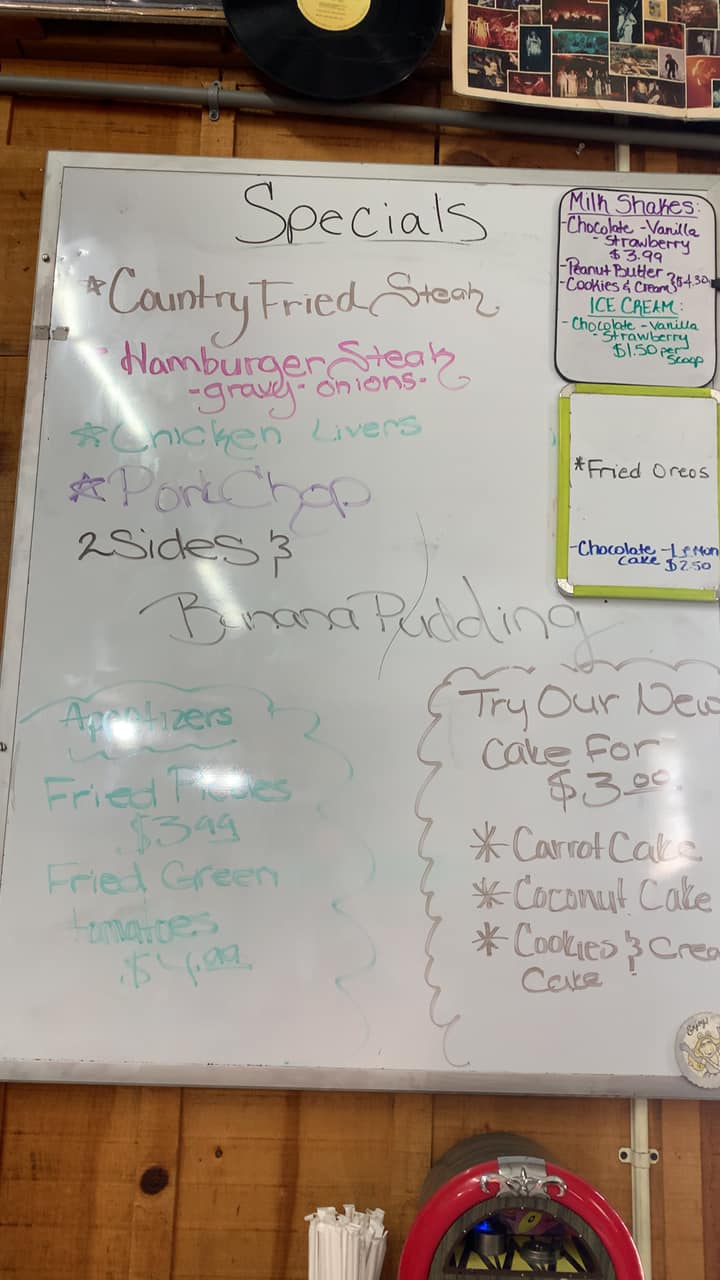 Specials
*Country Fried Steak
Hamburger Steak
-gravy- onions-
*Chicken Livers
*Pork Chop
2 Sides &
Banana Pudding
Appetizers
Fried Pickles
$3.99
Fried Green
tomatoes
$4.99
Milk Shakes:
-Chocolate -Vanilla
- Strawberry
$3.99
-Peanut Butter
-Cookies & Cream } $4.30
ICE CREAM:
- Chocolate - Vanilla
- Strawberry
$1.50 per
Scoop
*Fried Oreos
-Chocolate -Lemon
Cake $2.50
Try Our New
Cake For
$3.00
* Carrot Cake
* Coconut Cake
* Cookies & Crea
Cake
Enjoy